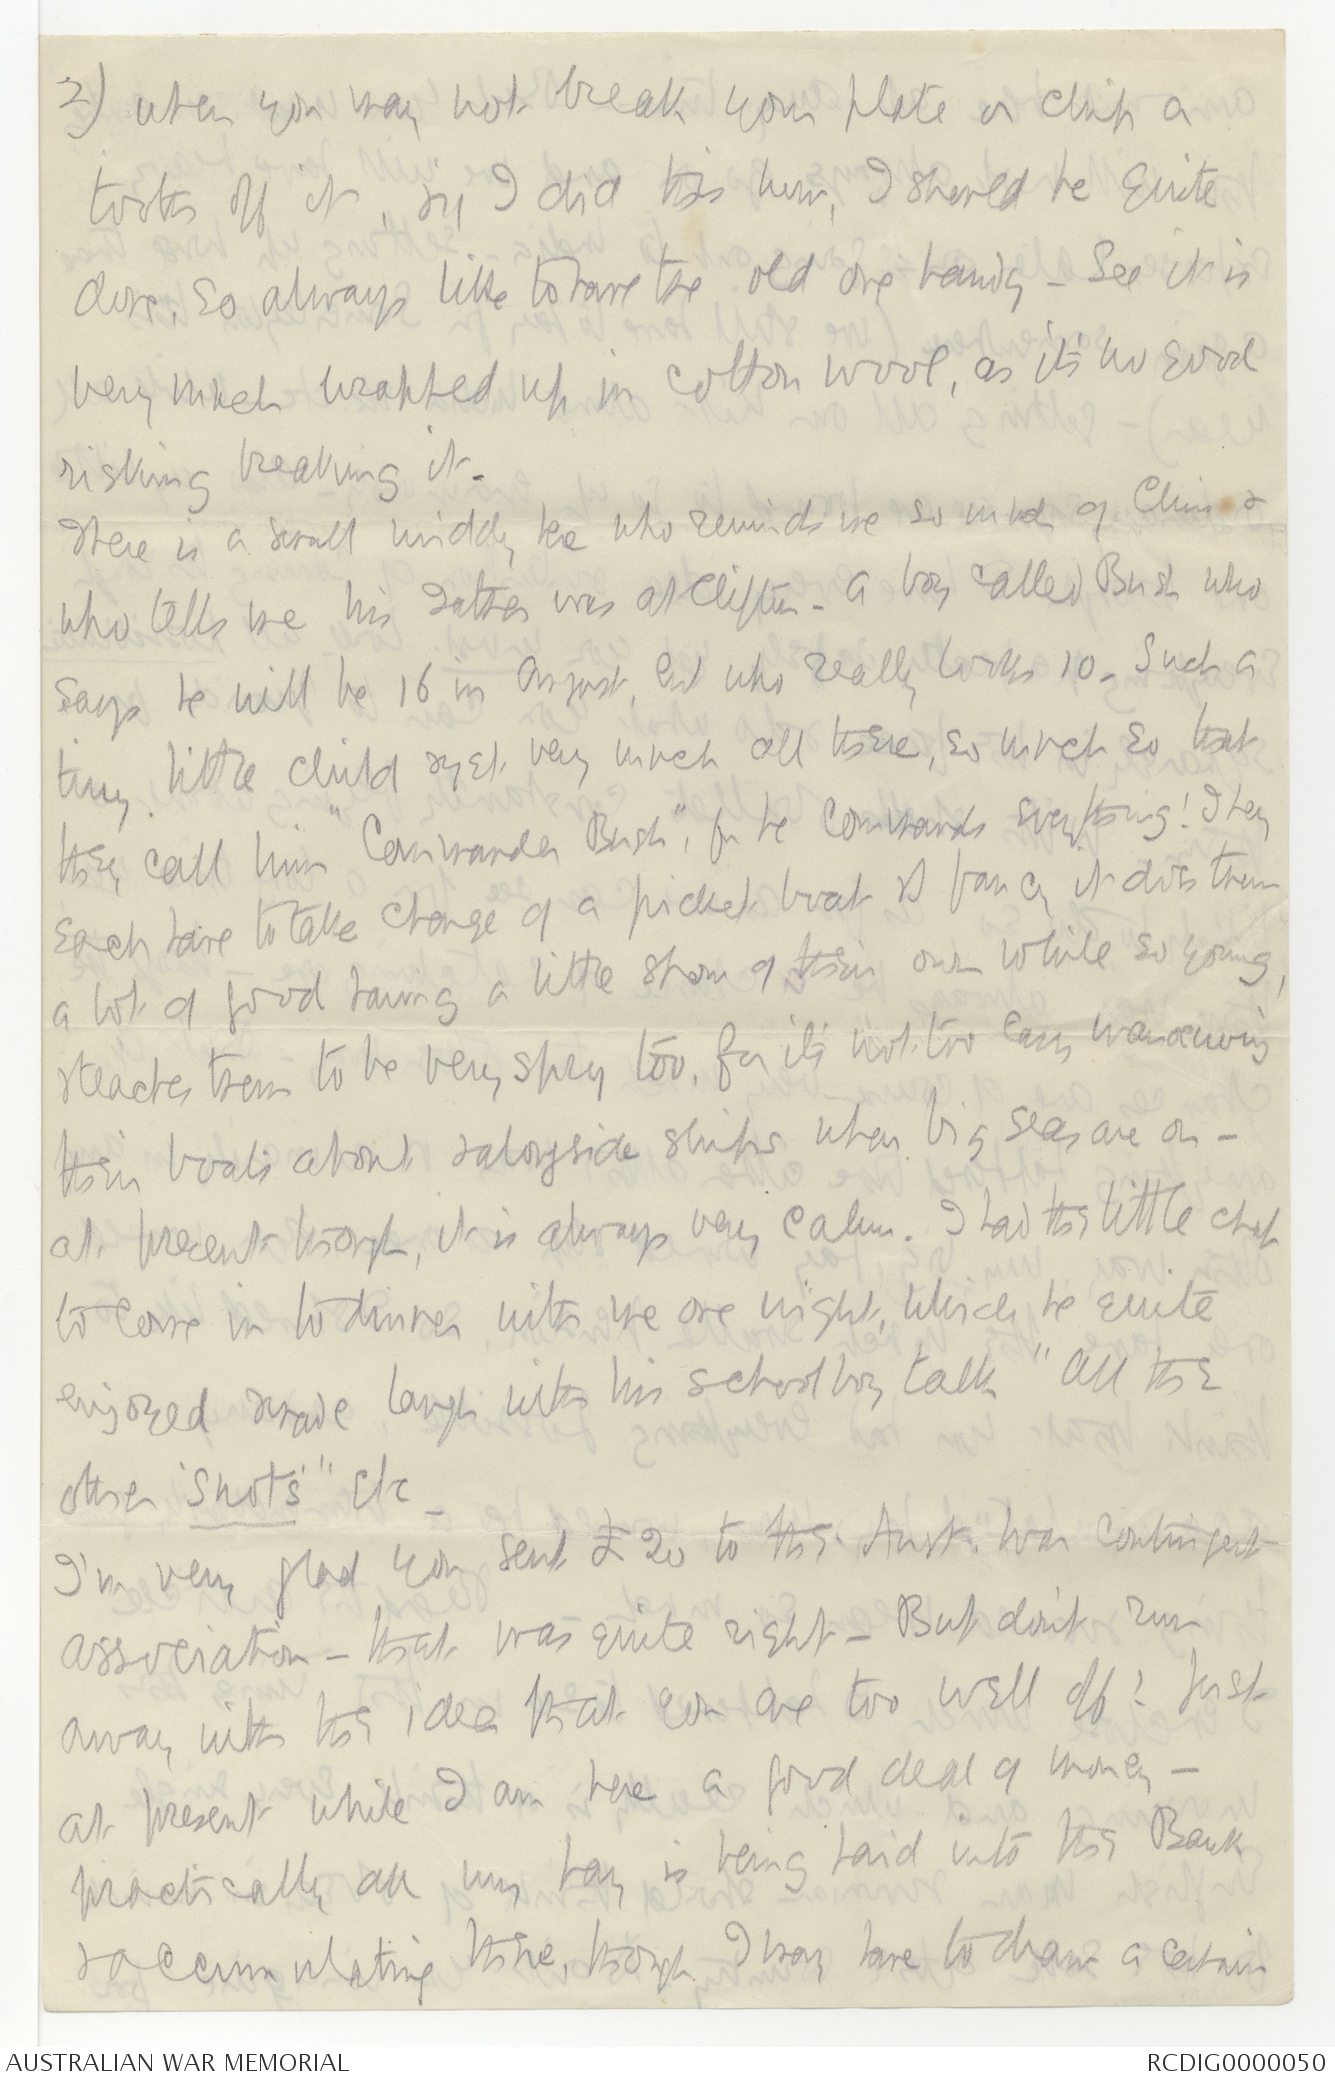 2) when you may not break your plate or chip a
tooth off it, & if I did this here, I should be quite
done, so always like to have the old one handy - See it is
very much wrapped up in cotton wool, as it's no good
risking breaking it -
There is a small middy here who reminds me so much of Clun &
who tells me his father was at Clifton - a boy called Bush who
says he will be 16 in August, but who really looks 10 - Such a
tiny little child & yet very much all there, so much so that
they call him "Commander Bush", for he commands everything! They
each have to take charge of a picket boat & I fancy it does them
a lot of good having a little show of their own while so young,
& teaches them to be very spry too, for it's not too easy manoeuvring
their boats about & alongside ships when big seas are on -
at present though, it is always very calm. I had this little chap
to come in to dinner with me one night, which he quite
enjoyed & made laugh with his schoolboy talk "all the
other 'snots'" etc -
I'm very glad you sent £20 to the Aust. War Contingent
Association - that was quite right - But don't run
away with the idea that you are too well off! Just
at present while I am here a good deal of money -
practically all my pay is being paid into the Bank
& accumulating there, though I may have to draw a certain
AUSTRALIAN WAR MEMORIAL
RCDIG0000050